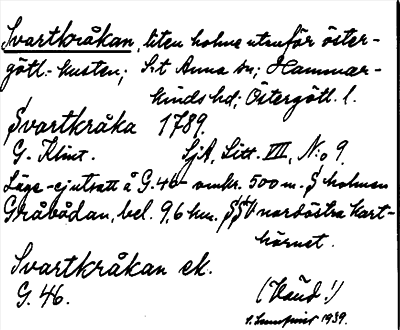 Svartkråkan, liten holme utanför öster-
götl.-kusten; S:t Anna sn; Hammar-
kinds hd; Östergötl. l.
Svartkråka 1789.
G. Klint. SjA, Litt. VIII, N:o 9.
Läge - ej utsatt å G. 40 - omkr. 500 m. S holmen
Gråbådan, bel. 9,6 km. SSV nordöstra kart-
hörnet.
Svartkråkan ek.
G. 46. (Händ!)
1939.